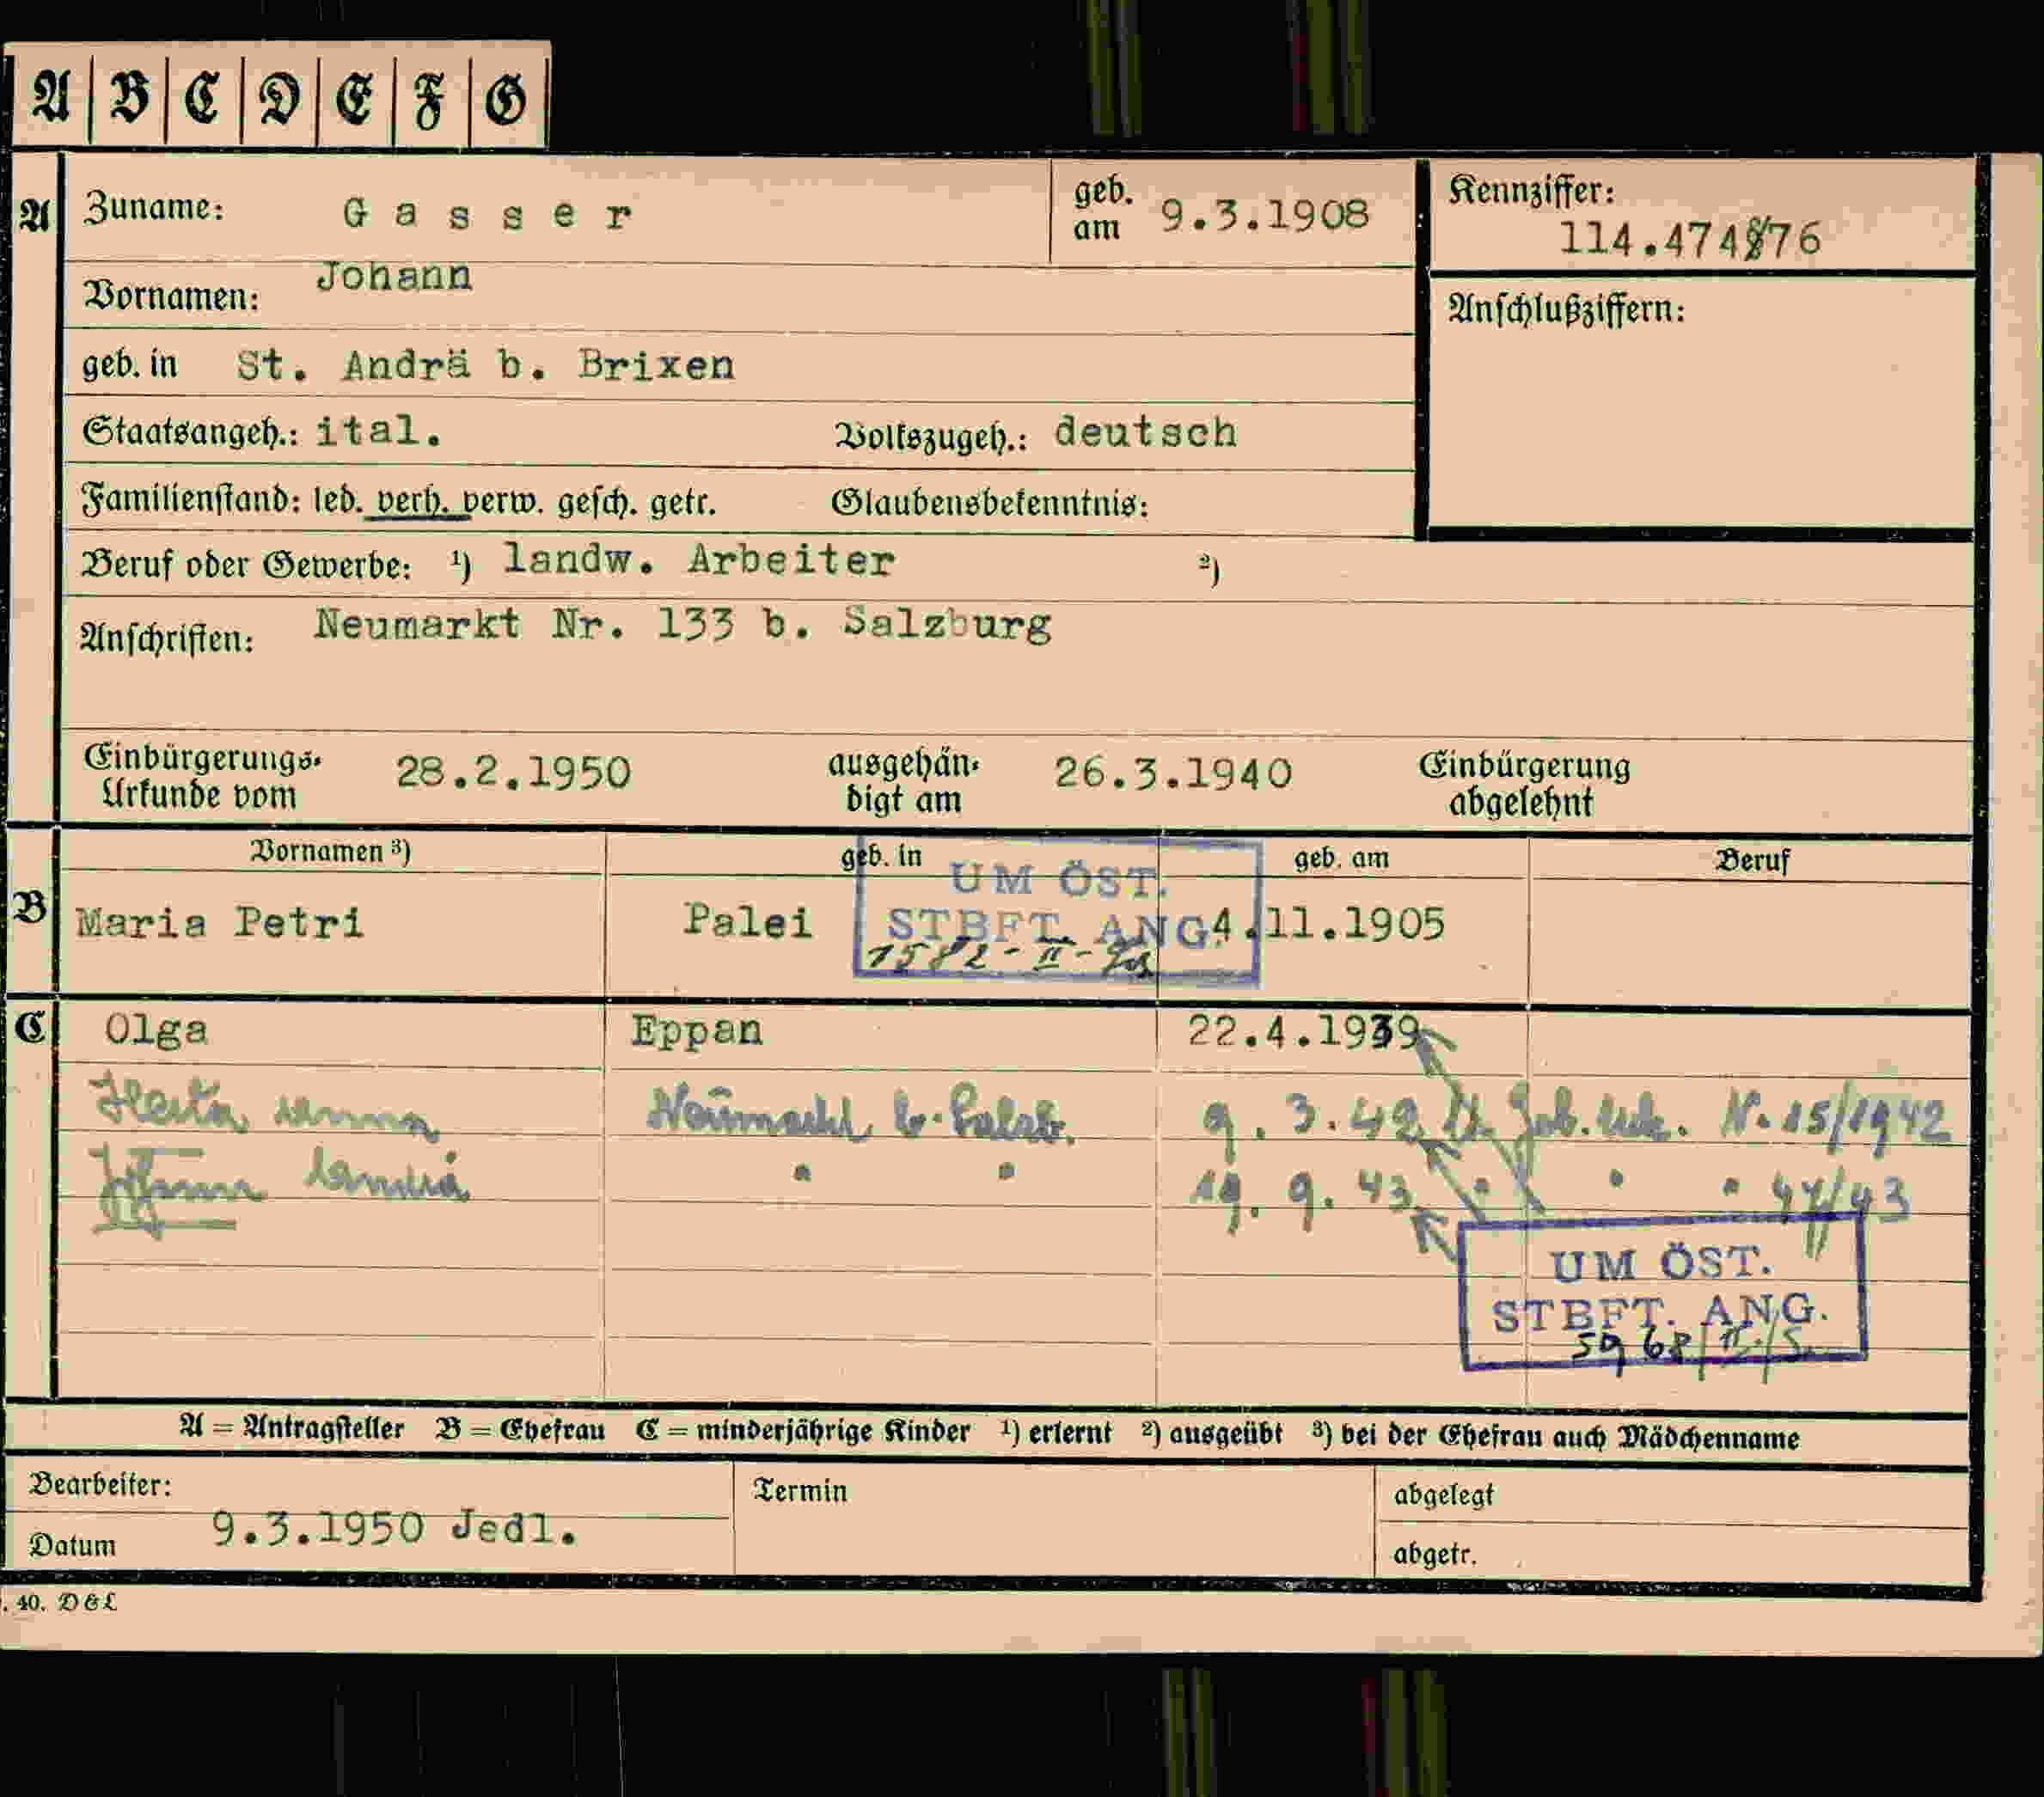 A B C D E F G
A Zuname: Gasser geb. am 9.3.1908 Kennziffer: 114.474 76
Vornamen: Johann Anschlußziffern:
geb. in St. Andrä b. Brixen
Staatsangeh.: ital. Volkszugeh.: deutsch
Familienstand: led. verh. verw. gesch. getr. Glaubensbekenntnis:
Beruf oder Gewerbe: ¹) landw. Arbeiter ²)
Anschriften: Neumarkt Nr. 133 b. Salzburg
Einbürgerungs-Urkunde vom 28.2.1950 ausgehändigt am 26.3.1940 Einbürgerung abgelehnt
Vornamen ³) geb. in geb. am Beruf
UM ÖST.
STBFT. ANG.
1582-II-
B Maria Petri Palei 4.11.1905
C Olga Eppan 22.4.1939
Herta Anna Neumarkt b. Salzb. 9.3.42 lt. Geb. Urk. N. 15/1942
Johann Andrä " " 19.9.43 " " " 47/43
UM ÖST.
STBFT. ANG.
5968/II/S.
A = Antragsteller B = Ehefrau C = minderjährige Kinder ¹) erlernt ²) ausgeübt ³) bei der Ehefrau auch Mädchenname
Bearbeiter: Termin abgelegt
Datum 9.3.1950 Jedl. abgetr.
. 40. D&L